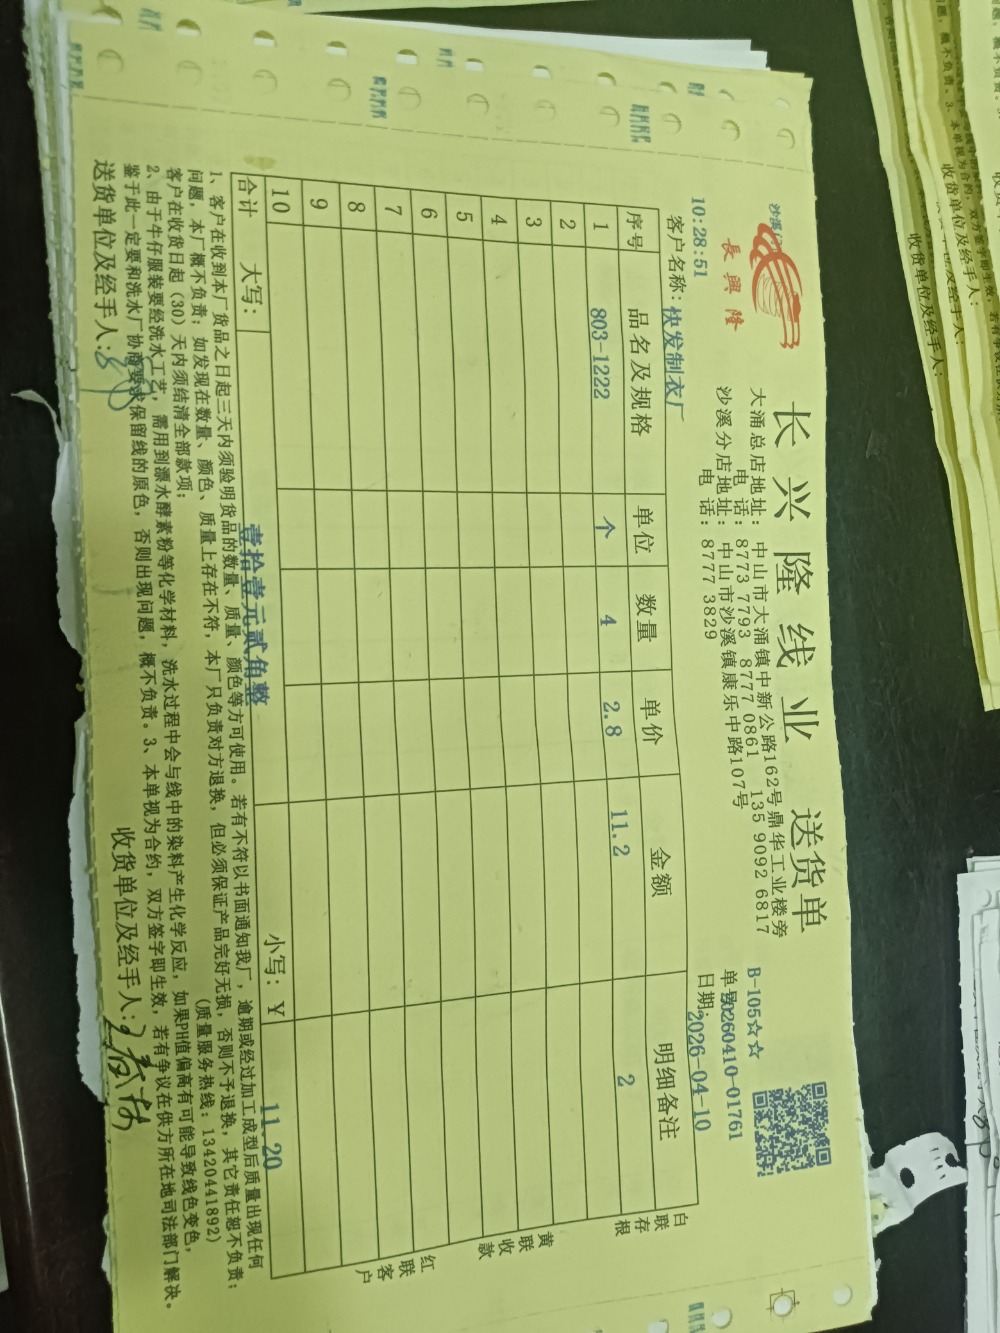 沙溪
長興隆
长兴隆线业 送货单
大涌总店地址: 中山市大涌镇中新公路162号鼎华工业楼旁
电话: 8773 7793 8777 0861 135 9092 6817
沙溪分店地址: 中山市沙溪镇康乐中路107号
电话: 8777 3829
B-105☆☆
单号:20260410-01761
10:28:51
日期:2026-04-10
客户名称:快发制衣厂
序号 品名及规格 单位 数量 单价 金额 明细备注
1 803-1222 个 4 2.8 11.2 2
2
3
4
5
6
7
8
9
10
合计 大写: 壹拾壹元贰角整 小写: ¥ 11.20
白联存根
黄联收款
红联客户
1、客户在收到本厂货品之日起三天内须验明货品的数量、质量、颜色等方可使用。若有不符以书面通知我厂,逾期或经过加工成型后质量出现任何
问题,本厂概不负责;如发现在数量、颜色、质量上存在不符,本厂只负责对方退换,但必须保证产品完好无损,否则不予退换,其它责任恕不负责;
客户在收货日起(30)天内须结清全部款项; (质量服务热线:13420441892)
2、由于牛仔服装要经洗水工艺,需用到漂水酵素粉等化学材料,洗水过程中会与线中的染料产生化学反应,如果PH值偏高有可能导致线色变色,
鉴于此一定要和洗水厂协商要求保留线的原色,否则出现问题,概不负责。3、本单视为合约,双方签字即生效,若有争议在供方所在地司法部门解决。
送货单位及经手人: 收货单位及经手人:
收货单位及经手人:
收货单位及经手人: